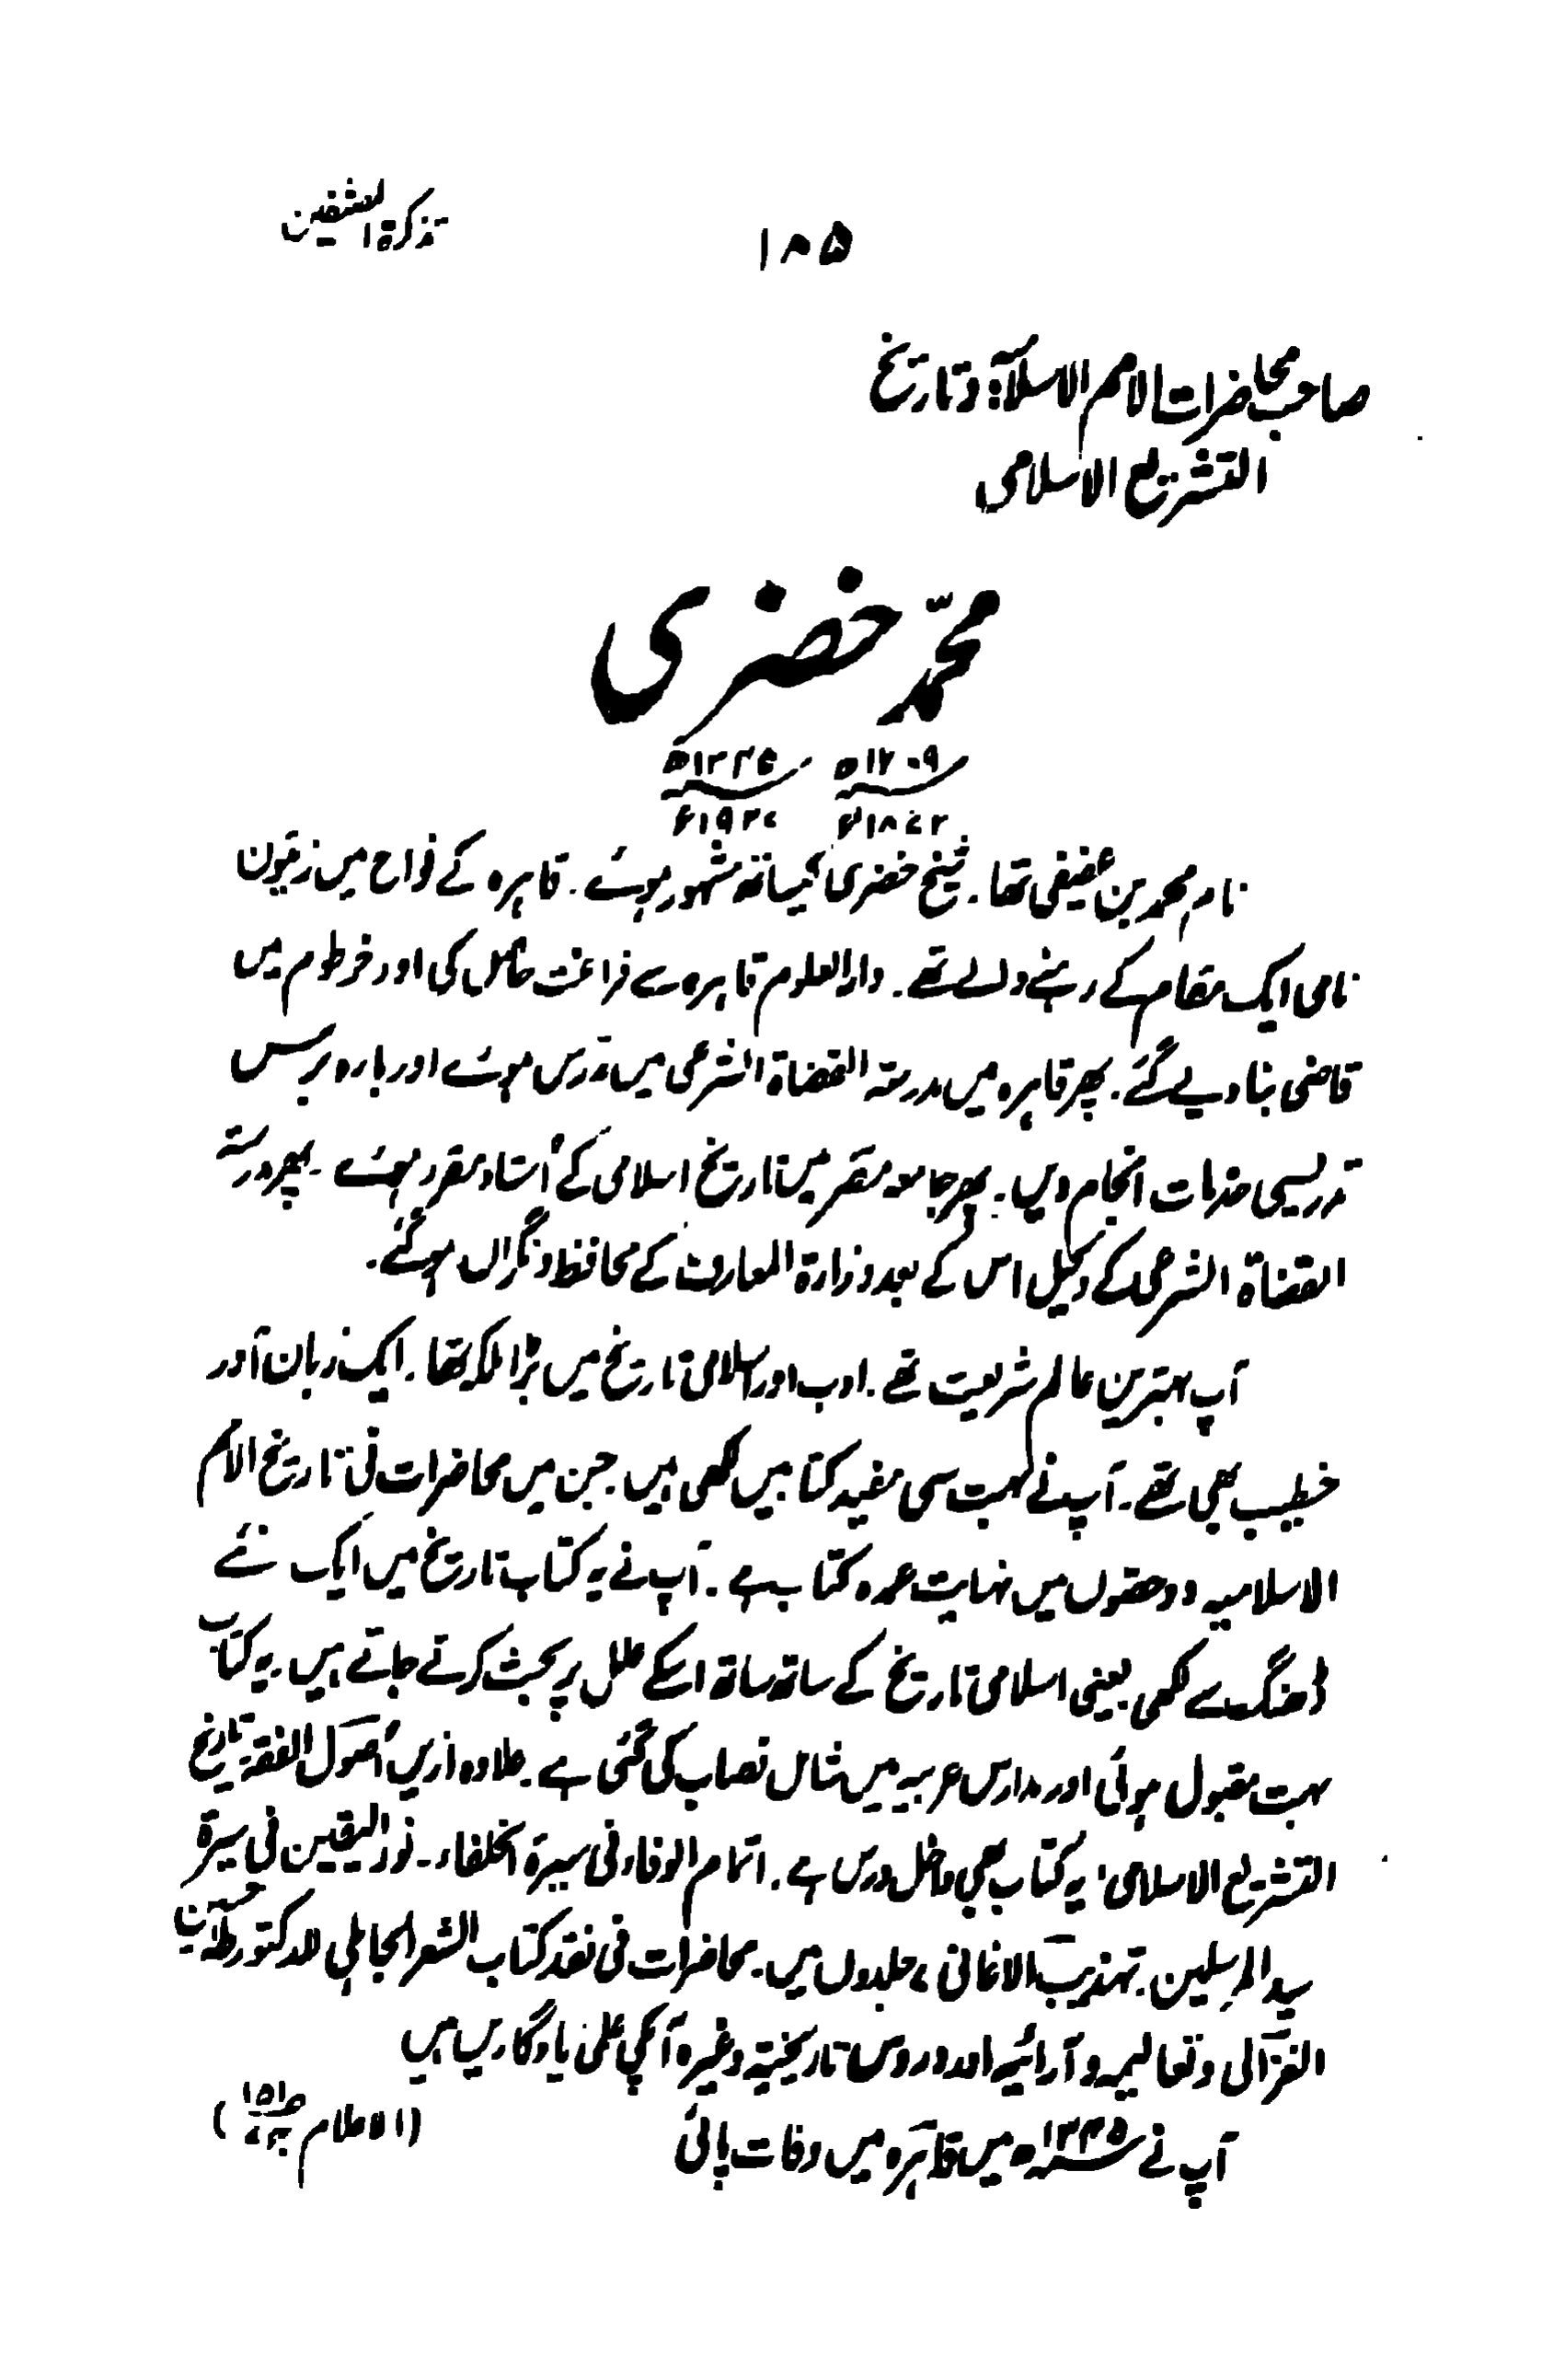 تذکرۃ المصنفین
۱۸۵
صاحب محاضرات الامم الاسلامیۃ وتاریخ
التشریع الاسلامی
محمّد خضری
۱۳۴۵ھ
۱۸۷۲ء
نام محمد بن عفیفی تھا۔ شیخ خضری کیساتھ مشہور ہوئے۔ قاہرہ کے نواح میں زیتون
نامی ایک مقام کے رہنے والے تھے۔ دارالعلوم قاہرہ سے فراغت حاصل کی اور خرطوم میں
قاضی بنا دیے گئے۔ پھر قاہرہ میں مدرستہ القضاۃ الشرعی میں مدرس ہوئے اور بارہ برس
تدریسی خدمات انجام دیں۔ پھر جامعہ مصر میں تاریخ اسلامی کے اُستاد مقرر ہوئے۔ پھر مدرستہ
القضاۃ الشرعی کے وکیل اس کے بعد وزارۃ المعارف کے محافظ و نگراں ہو گئے۔
آپ بہترین عالم شریعت تھے۔ ادب اور اسلامی تاریخ میں بڑا ملکہ تھا۔ ایک زبان آور
خطیب بھی تھے۔ آپ نے بہت سی مفید کتابیں لکھی ہیں جن میں محاضرات فی تاریخ الامم
الاسلامیہ دو حصّوں میں نہایت عمدہ کتاب ہے۔ آپ نے یہ کتاب تاریخ میں ایک نئے
ڈھنگ سے لکھی یعنی اسلامی تاریخ کے ساتھ ساتھ اسکے علل پر بحث کرتے جاتے ہیں۔ یہ کتاب
بہت مقبول ہوئی اور مدارس عربیہ میں شامل نصاب کی گئی ہے۔ علاوہ ازیں اُصول الفقہ۔ تاریخ
التشریع الاسلامی، یہ کتاب بھی داخل درس ہے۔ اتمام الوفاء فی سیرۃ الخلفاء۔ نور الیقین فی سیرۃ
سید المرسلین۔ تہذیب الاغانی ۷ جلدوں میں۔ محاضرات فی نقد کتاب الشعر الجاہلی للدکتور طٰہٰ حسین
الغزالی وتعالیمہ و آرائیہ اور دروس تاریخیۃ وغیرہ آپکی علمی یادگاریں ہیں
آپ نے ۱۳۴۵ھ میں قاہرہ میں وفات پائی
(الاعلام ص۱۵۱)